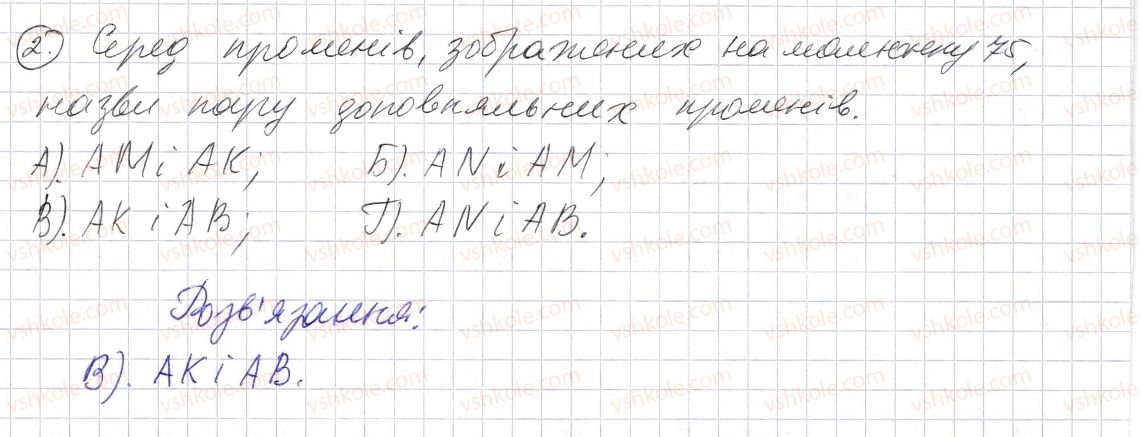 2. Серед променів, зображених на малюнку 75,
назви пару доповняльних променів.
А). AM і AK; Б). AN і AM;
В). AK і AB; Г). AN і AB.
Розв'язання:
В). AK і AB.